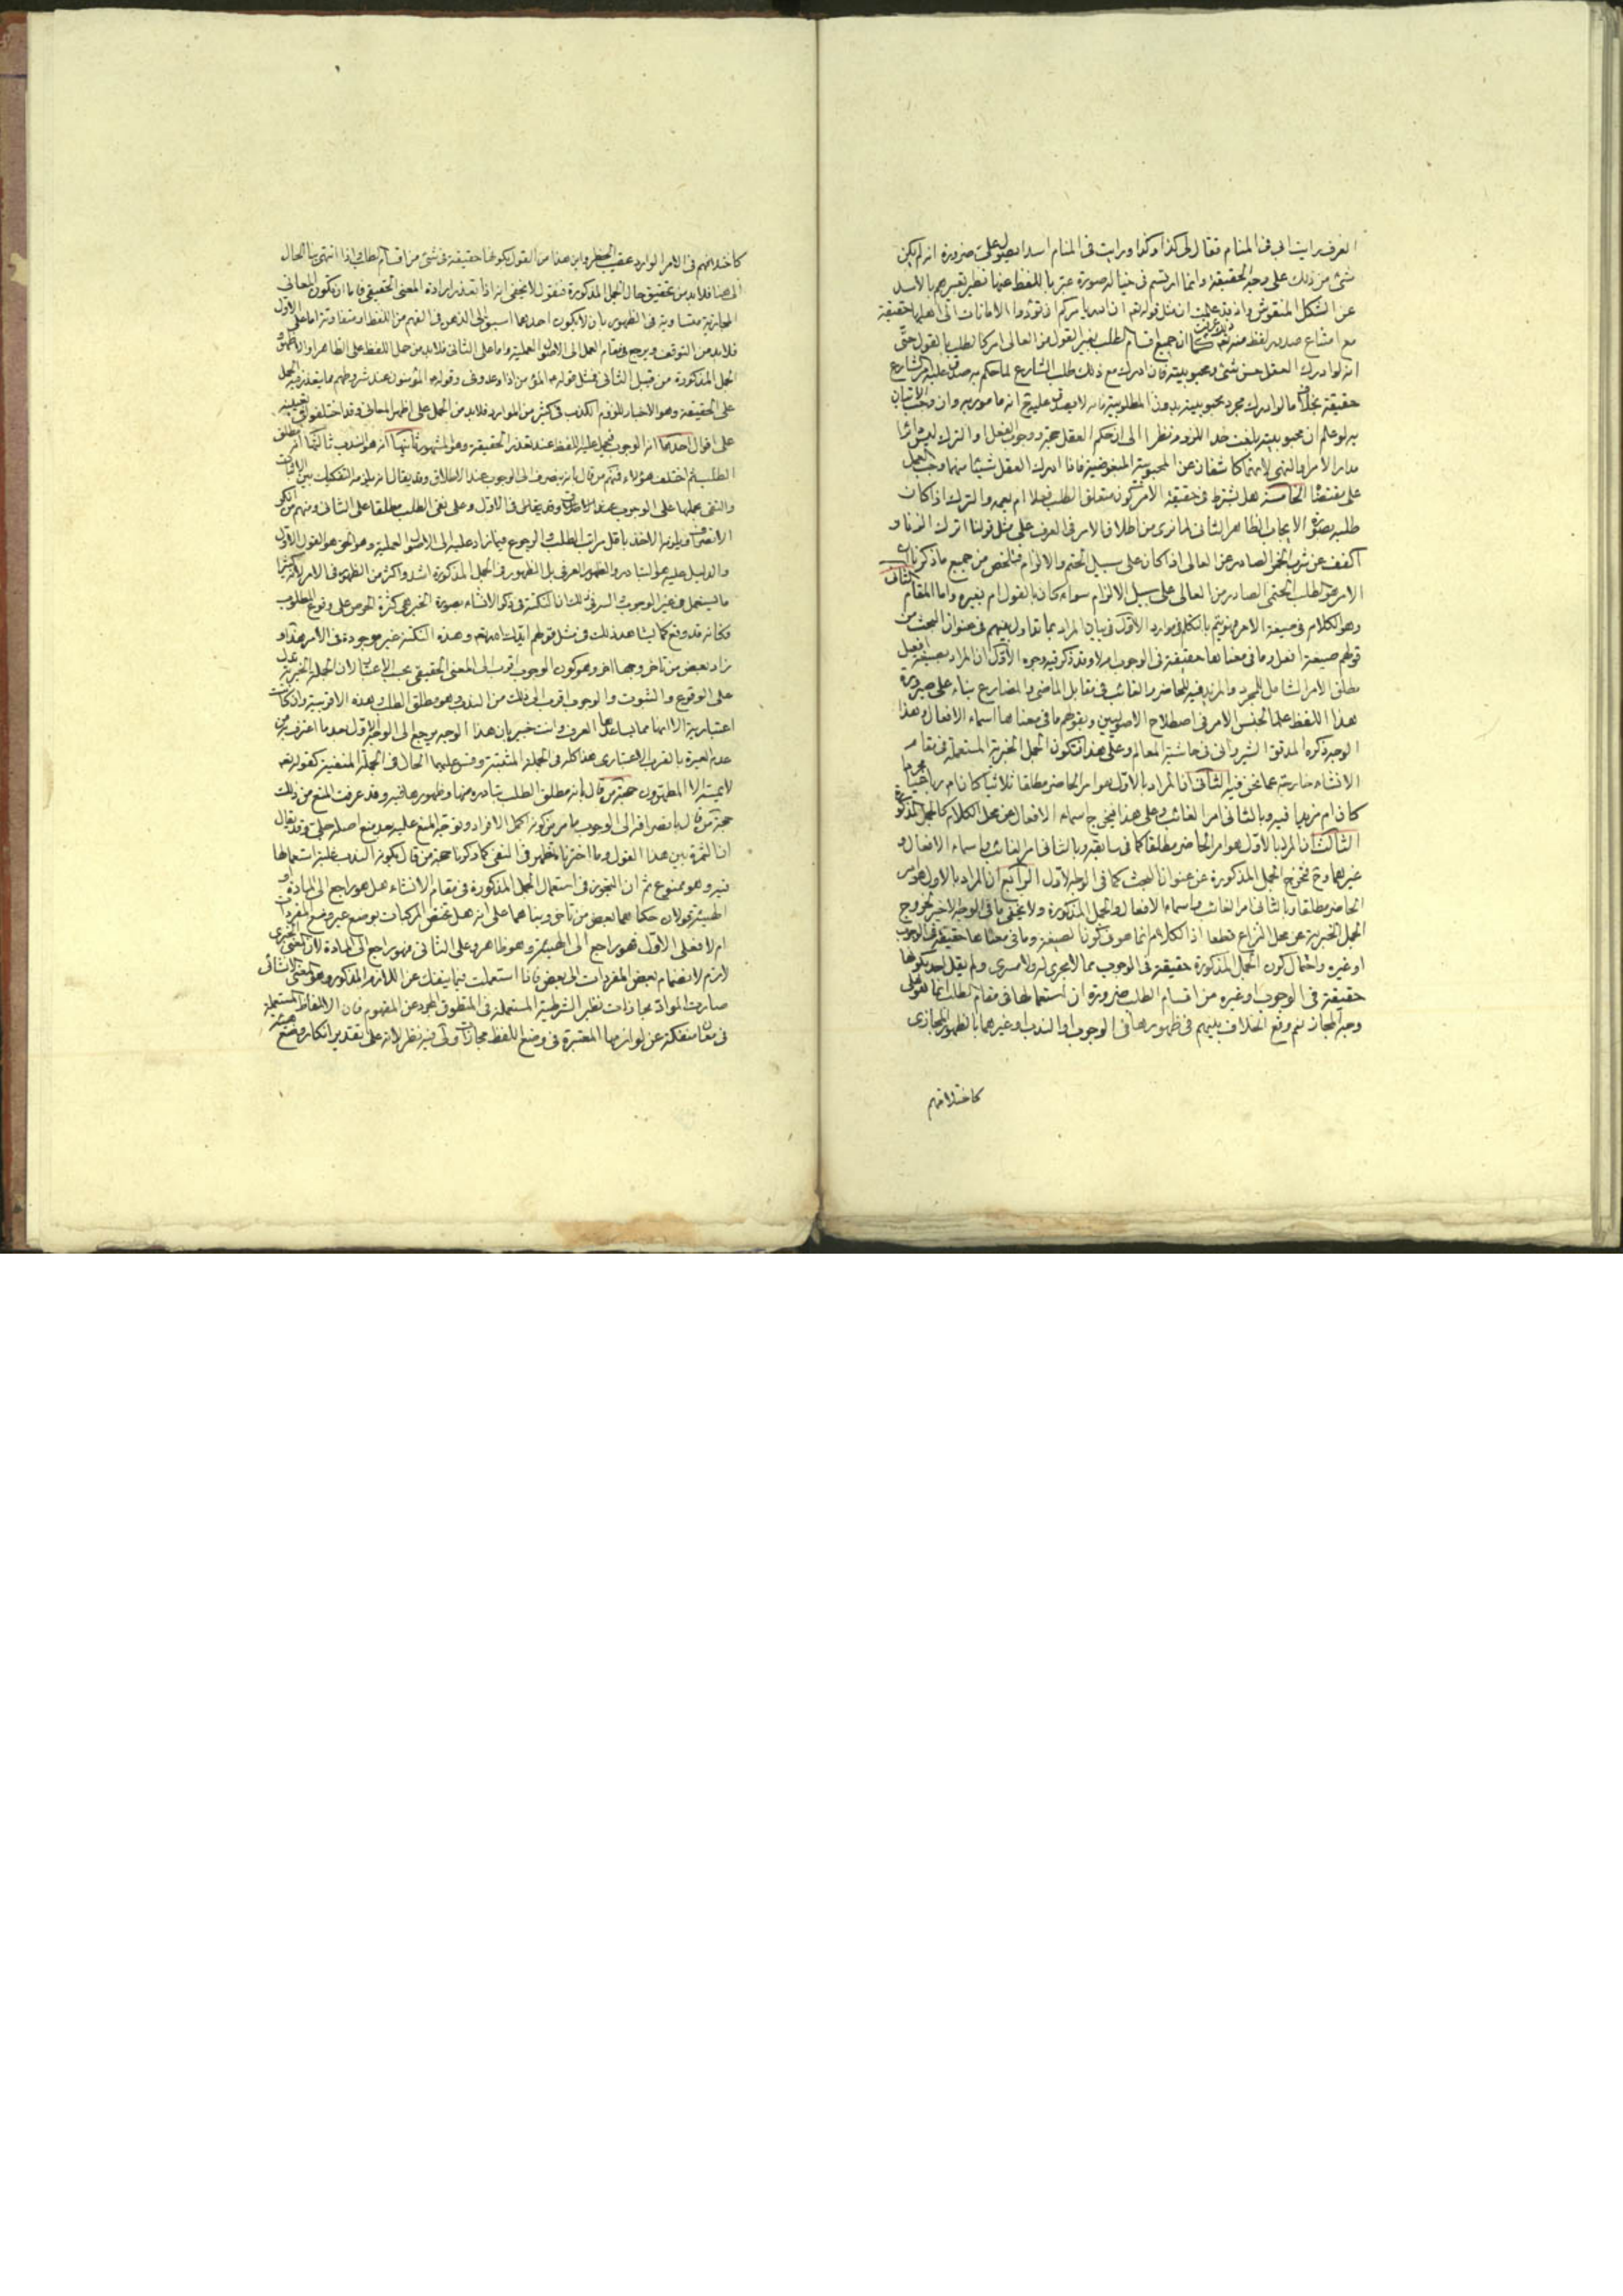 العرف رايت ابى فى المنام فقال لى كذا وكذا ورايت فى المنام اسدا يصول على ضرورة انه لم يكن
شئ من ذلك على وجه الحقيقة وانما ارتسم فى خياله صورة عبر باللفظ عنها نظير تعبيرهم بالاسد
عن الشكل المنقوش واذ قد علمت ان مثل قوله تعالى ان الله يامركم ان تؤدوا الامانات الى اهلها حقيقة
مع امتناع صدور لفظ منه تعالى ان جميع اقسام الطلب بغير القول من العالى امر كالطلب بالقول حتى
انه لو ادرك العقل حسن شئ ومحبوبيته فان ادرك مع ذلك طلب الشارع لما حكم به صدق عليه امر الشارع
حقيقة بخلاف ما لو ادرك مجرد محبوبيته بدون المطلوبية فانه لا يصدق عليه ح انه مامور به وان وجب الاتيان
به لو علم ان محبوبيته بلغت حد اللزوم نظرا الى ان حكم العقل حجة ووجوب الفعل او الترك ليس دائرا
مدار الامر والنهى لانهما كاشفان عن المحبوبية والمبغوضية فاذا ادرك العقل شيئا منهما وجب العمل
على مقتضاه الخامسة هل يشترط فى حقيقة الامر كون متعلق الطلب فعلا ام يعمه والترك اذا كان
طلبه بصورة الايجاب الظاهر الثانى لما نرى من اطلاق الامر فى العرف على مثل قولنا اترك الزنا و
اكفف عن شرب الخمر الصادر عن العالى اذا كان على سبيل الحتم والالزام فتلخص من جميع ما ذكرنا ان
الامر هو الطلب الحتمى الصادر من العالى على سبيل الالزام سواء كان بالقول ام بغيره واما المقام الثانى
وهو الكلام فى صيغة الامر فهو يتم بالتكلم فى موارد الاول فى بيان المراد بما تداول بينهم فى عنوان البحث من
قولهم صيغة افعل وما فى معناها حقيقة فى الوجوب ام لا وقد ذكر فيه وجوه الاول ان المراد بصيغة افعل
مطلق الامر الشامل للمجرد والمزيد فيه للحاضر والغائب فى مقابل الماضى والمضارع بناء على صيرورة
هذا اللفظ علما لجنس الامر فى اصطلاح الاصوليين وبقولهم ما فى معناها اسماء الافعال وهذا
الوجه ذكره المدقق الشيروانى فى حاشية المعالم وعلى هذا فتكون الجمل الخبرية المستعملة فى مقام
الانشاء خارجة عما نحن فيه الثانى ان المراد بالاول هو امر الحاضر مطلقا ثلاثيا كان ام رباعيا مجردا
كان ام مزيدا فيه وبالثانى امر الغائب وعلى هذا فيخرج اسماء الافعال عن محل الكلام كالجمل المذكورة
الثالث ان المراد بالاول هو امر الحاضر مطلقا كما فى سابقه وبالثانى امر الغائب واسماء الافعال و
غيرهما وح تخرج الجمل المذكورة عن عنوان البحث كما فى الوجه الاول الرابع ان المراد بالاول هو امر
الحاضر مطلقا وبالثانى امر الغائب واسماء الافعال والجمل المذكورة ولا يخفى ما فى الوجه الاخير لخروج
الجمل الخبرية عن محل النزاع قطعا اذ الكلام انما هو فى كون الصيغة وما فى معناها حقيقة فى الوجوب
او غيره واحتمال كون الجمل المذكورة حقيقة فى الوجوب مما لا يجرى له ولا مسرى ولم يقل احد بكونها
حقيقة فى الوجوب او غيره من اقسام الطلب ضرورة ان استعمالها فى مقام الطلب انما هو على
وجه المجاز نعم وقع الخلاف بينهم فى ظهورها فى الوجوب او الندب او غيرهما بالظهور المجازى
كاختلافهم
كاختلافهم فى الامر الوارد عقيب الحظر واين هذا من القول بكونها حقيقة فى شئ من اقسام الطلب واذا انتهى بنا الحال
الى هنا فلا بد من تحقيق حال الجمل المذكورة فنقول لا يخفى انه اذا تعذر ارادة المعنى الحقيقى فاما ان يكون المعانى
المجازية متساوية فى الظهور بان لا يكون احدهما اسبق الى الذهن فى الفهم من اللفظ او متفاوتة اما على الاول
فلا بد من التوقف ويرجع فى مقام العمل الى الاصول العملية واما على الثانى فلا بد من حمل اللفظ على الظاهر او الاظهر و
الجمل المذكورة من قبيل الثانى فمثل قوله المؤمن اذا وعد وفى وقوله المؤمنون عند شروطهم مما يتعذر فيه الحمل
على الحقيقة وهو الاخبار للزوم الكذب فى كثير من الموارد فلا بد من الحمل على اظهر المعانى وقد اختلفوا فى تعيينه
على اقوال احدها انه الوجوب فيحمل عليه اللفظ عند تعذر الحقيقة وهو المشهور ثانيها انه هو الندب ثالثها انه مطلق
الطلب ثم اختلف هؤلاء فمنهم من قال بانه ينصرف الى الوجوب عند الاطلاق وقد يقال انه يلزمه التفكيك بين الاثبات
والنفى بحملها على الوجوب فى الاول وعلى نفى الطلب مطلقا على الثانى ومنهم من انكر
الانصراف ويلزمه الاخذ باقل مراتب الطلب والرجوع فيما زاد عليه الى الاصول العملية وهو الحق هو القول الاول
والدليل عليه هو التبادر والظهور العرفى بل الظهور فى الجمل المذكورة اشد واكثر من الظهور فى الامر لانه كثيرا
ما يستعمل فى غير الوجوب والسر فى ذلك ان النكتة فى ذكر الانشاء بصورة الخبر هى كثرة الحرص على وقوع المطلوب
فكانه قد وقع كما يشاهد ذلك فى مثل قولهم وهذه النكتة غير موجودة فى الامر هذا و
زاد بعض من تاخر وجها اخر وهو كون الوجوب اقرب الى المعنى الحقيقى بحسب الاعتبار لان الجملة الخبرية تدل
على الوقوع والثبوت والوجوب اقرب الى ذلك من الندب وهو مطلق الطلب وهذه الاقربية وان كانت
اعتبارية الا انها مما يساعدها العرف وانت خبير بان هذا الوجه يرجع الى الوجه الاول بعد ما اعترف به من
عدم العبرة بالقرب الاعتبارى هذا كله فى الجملة المثبتة وقس عليها الحال فى الجملة المنفية كقوله تعالى
لا يمسه الا المطهرون حجة من قال بانه مطلق الطلب تبادره منها وظهورها فيه وقد عرفت المنع من ذلك
حجة من قال بانصرافه الى الوجوب ما مر من كونه اكمل الافراد وتوجه المنع عليه بعد منع اصله جلى وقد يقال
ان الثمرة بين هذا القول وما اخترناه تظهر فى النفى كما ذكرنا حجة من قال بكونه الندب غلبة استعمالها
فيه وهو ممنوع ثم ان التجوز فى استعمال الجمل المذكورة فى مقام الانشاء هل هو راجع الى المادة او
الهيئة قولان حكاهما بعض من تاخر وبناهما على انه هل تختص المركبات بوضع غير وضع المفردات
ام لا فعلى الاول فهو راجع الى الهيئة وهو ظاهر وعلى الثانى فهو راجع الى المادة لان المعنى الخبرى
لازم لانضمام بعض المفردات الى بعض فاذا استعملت فيما ينفك عن اللازم المذكور وهو المعنى الانشائى
صارت المواد مجازات نظير الشرطية المستعملة فى المنطوق المجرد عن المفهوم فان الالفاظ المستعملة
فى معان منفكة عن لوازمها المعتبرة فى وضع اللفظ مجازات وفيه نظر لانه على تقدير انكار وضع هيئة